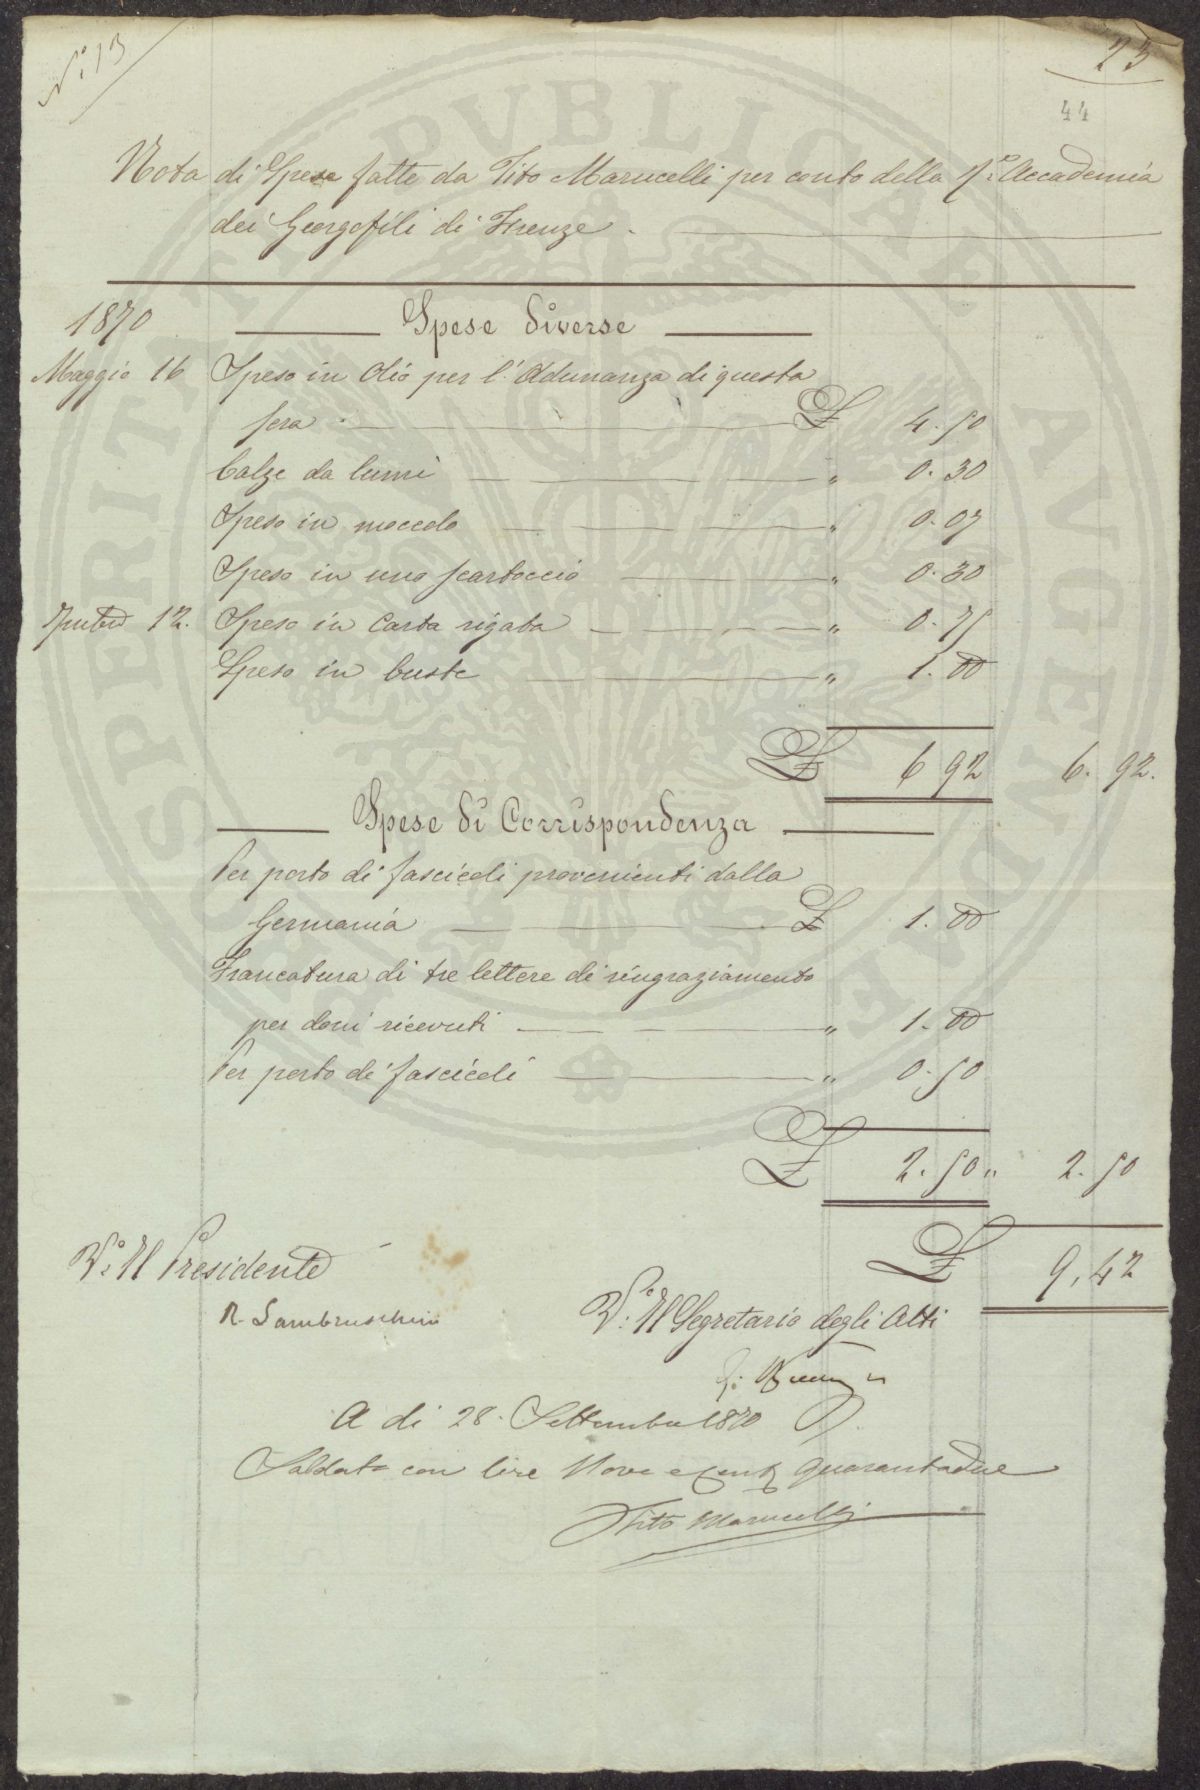 N.° 13
25
44
Nota di Spese fatte da Tito Marucelli per conto della R.° Accademia
dei Georgofili di Firenze.
1870 Spese diverse
Maggio 16 Speso in Olio per l'Adunanza di questa
sera £ 4.50
Calze da lumi " 0.30
Speso in moccolo " 0.07
Speso in uno scartoccio " 0.30
12. Speso in Carta rigata " 0.75
Speso in buste " 1.00
£ 6 92 6. 92.
Spese di Corrispondenza
Per porto di fascicoli provenienti dalla
Germania £ 1.00
Francatura di tre lettere di ringraziamento
per doni ricevuti " 1.00
Per porto di fascicoli " 0.50
£ 2.50 " 2.50
£ 9,42
V.° Il Presidente
R. Lambruschini
V.° Il Segretario degli Atti
A di 28. Settembre 1870
Saldato con lire Nove e Cent. quarantadue
Tito Marucelli
PROSPERITATI PVBLICAE AVGENDAE